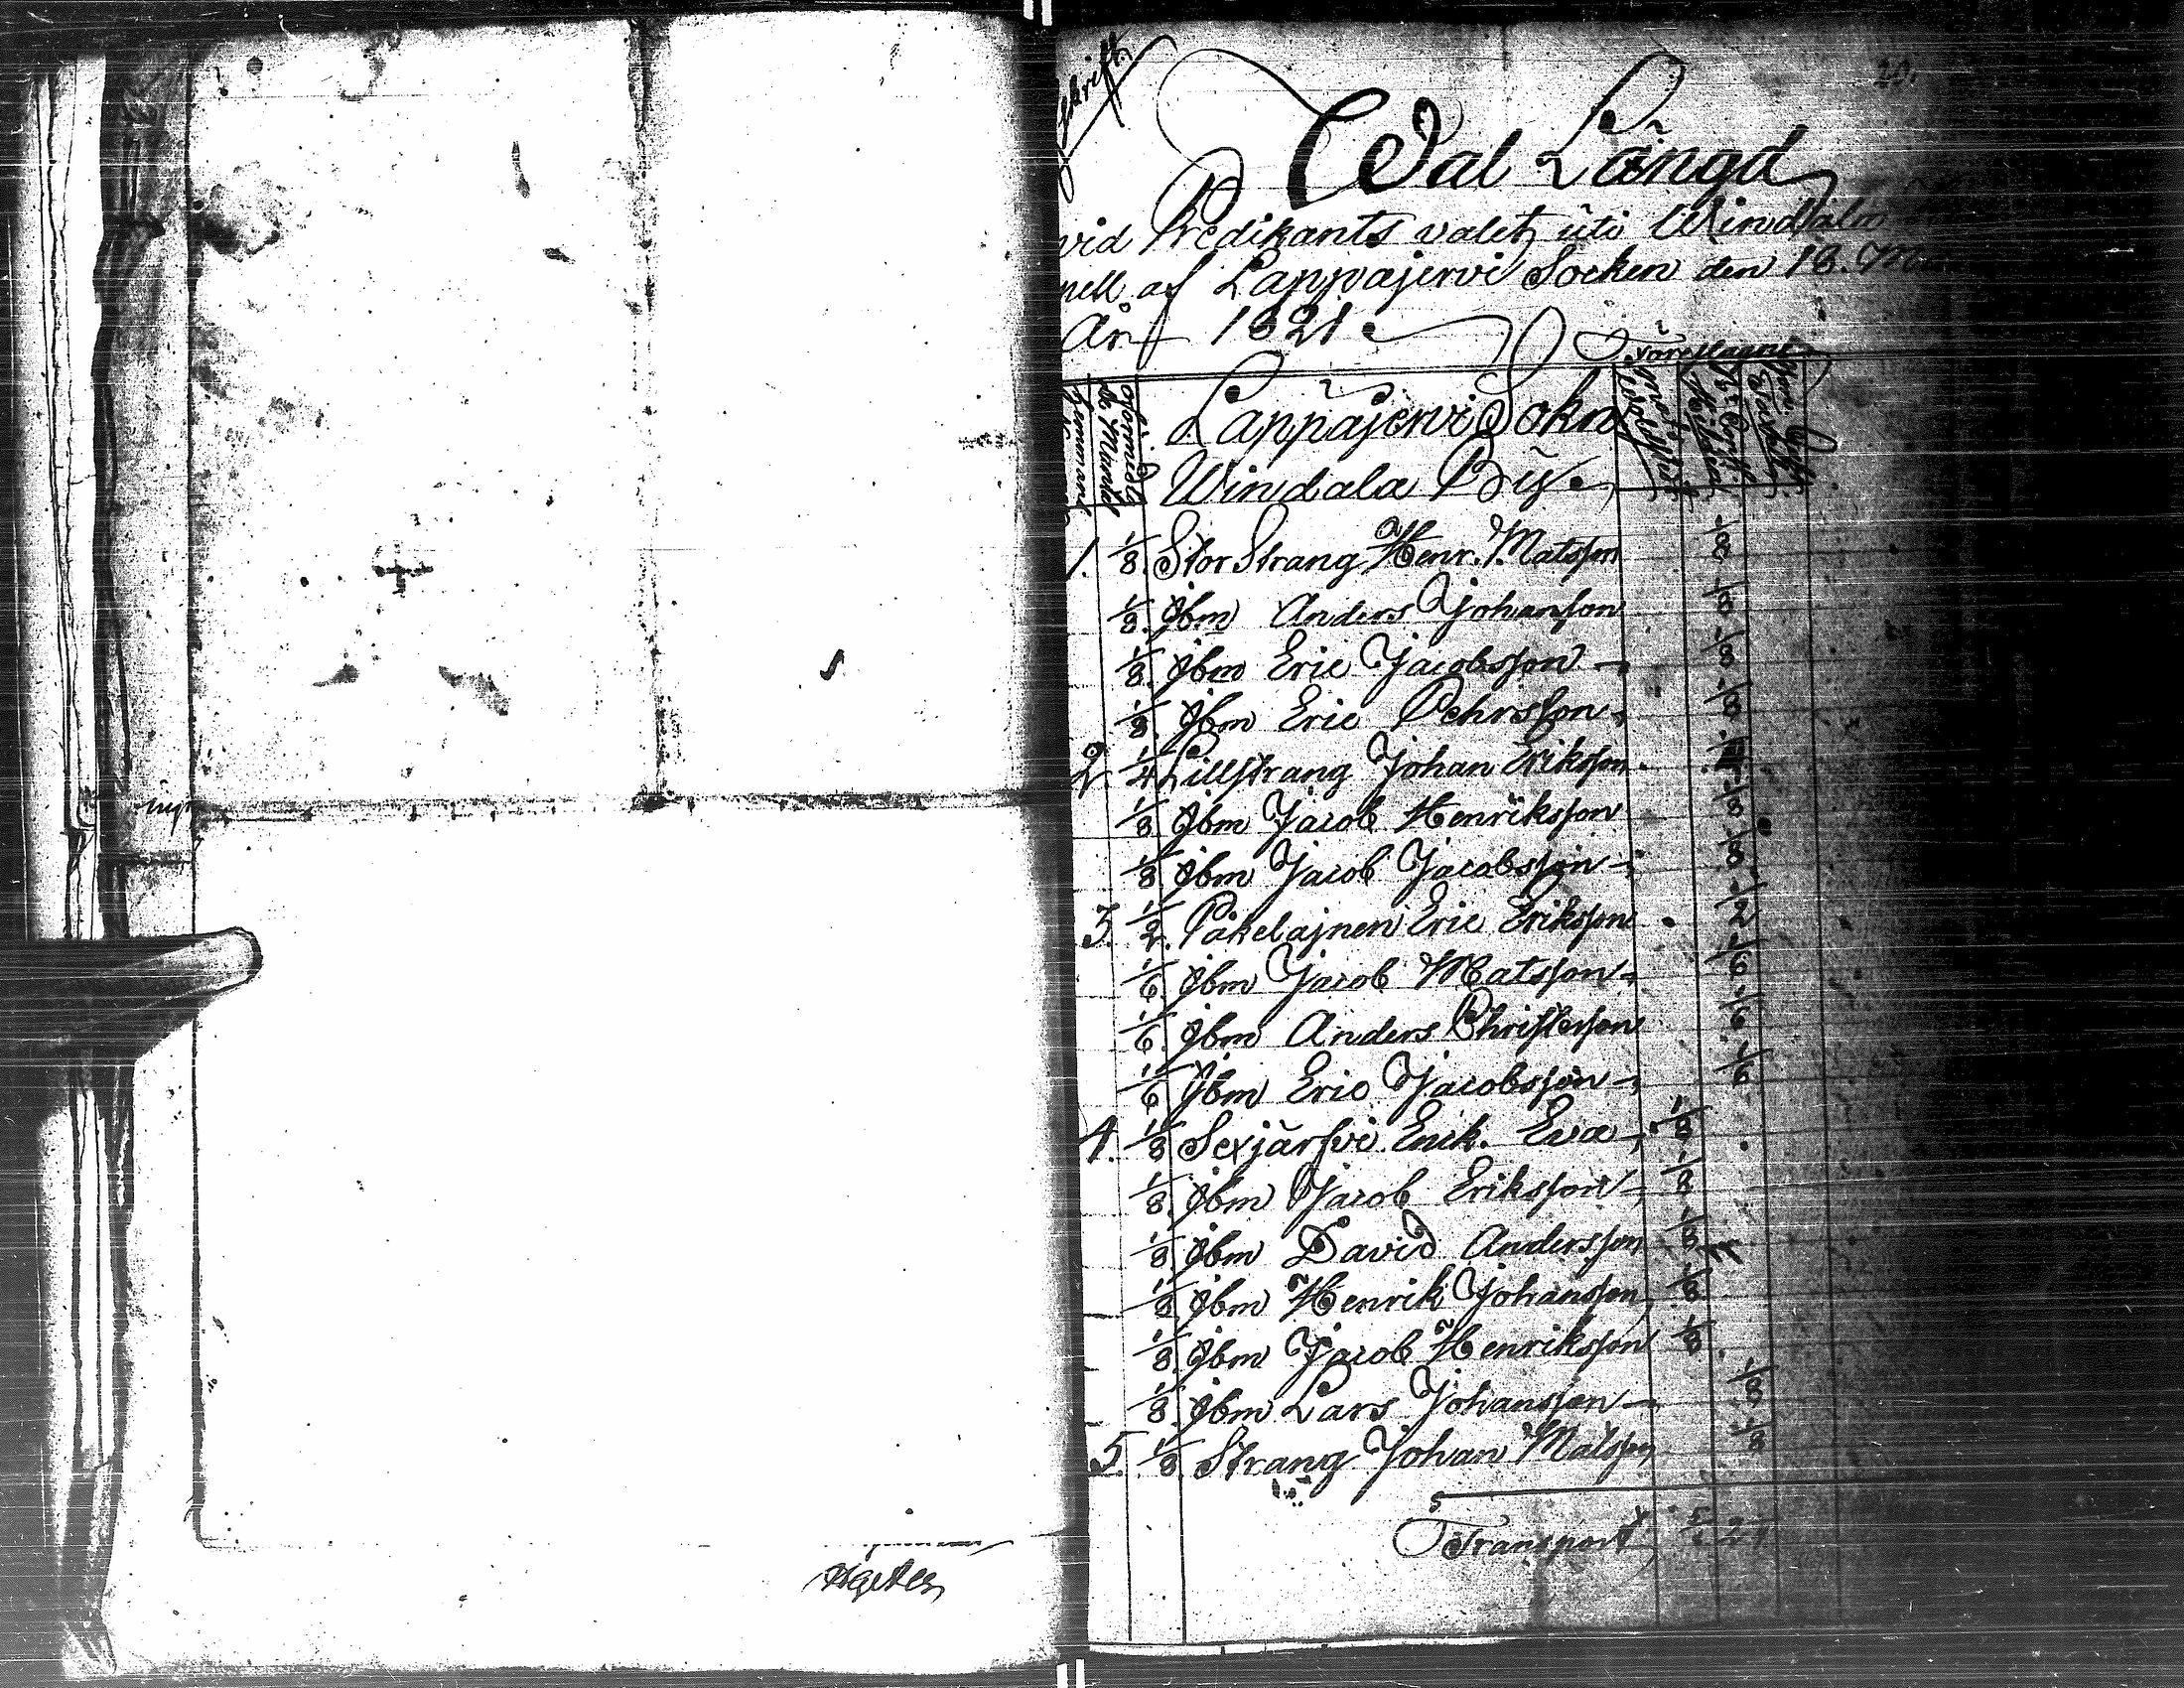 Wal Längd
vid Predikants valet uti Windala
pell af Lappajervi Socken den 18. M
År 1821
Föreslagne
Lappajervi Sokn
Windala By.
1. 1/8. Stor Strang Henr. Matsson 1/8
1/8. Jbm Anders Johansson 1/8
1/8. Jbm Eric Jacobsson 1/8
1/8 Jbm Eric Pehrsson 1/8
2. 1/4 Lillstrang Johan Eriksson
1/8 Jbm Jacob Henriksson 1/8
1/8 Jbm Jacob Jacobsson 1/8
3. 1/2. Päkelajnen Eric Eriksson 1/2
1/6 Jbm Jacob Matsson 1/6
1/6. Jbm Anders Christersson 1/6
1/6 Jbm Eric Jacobsson 1/6
4. 1/8 Sexjärfvi Enk. Eva 1/8
1/8 Jbm Jacob Eriksson 1/8
1/8 Jbm David Andersson 1/8
1/8 Jbm Henrik Johansson 1/8
1/8 Jbm Jacob Henriksson 1/8
1/8. Jbm Lars Johansson 1/8
5. 1/8. Strang Johan Matsson 1/8
Transport